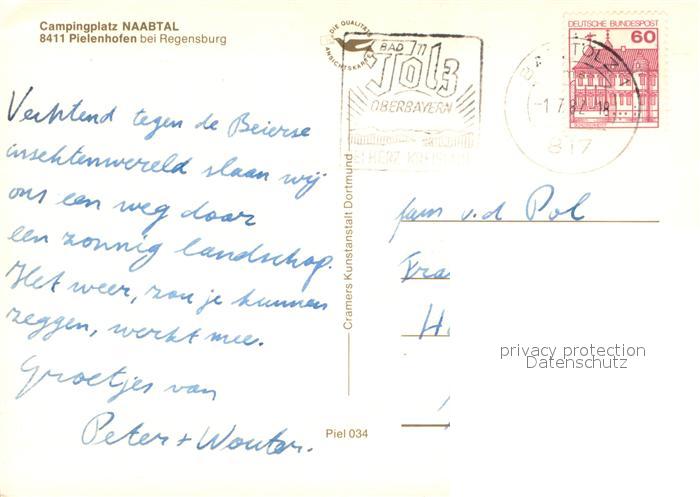 Campingplatz NAABTAL
8411 Pielenhofen bei Regensburg
DIE QUALITÄTS
ANSICHTSKARTE
BAD
Tölz
OBERBAYERN
DEUTSCHE BUNDESPOST
60
-1.7.82-18
817
Vechtend tegen de Beierse
insektenwereld slaan wij
ons een weg door
een zonnig landschap.
Het weer, zou je kunnen
zeggen, werkt mee.
Groetjes van
Peter + Wouter.
Cramers Kunstanstalt Dortmund
Piel 034
fam v.d Pol
Fra
H.
privacy protection
Datenschutz